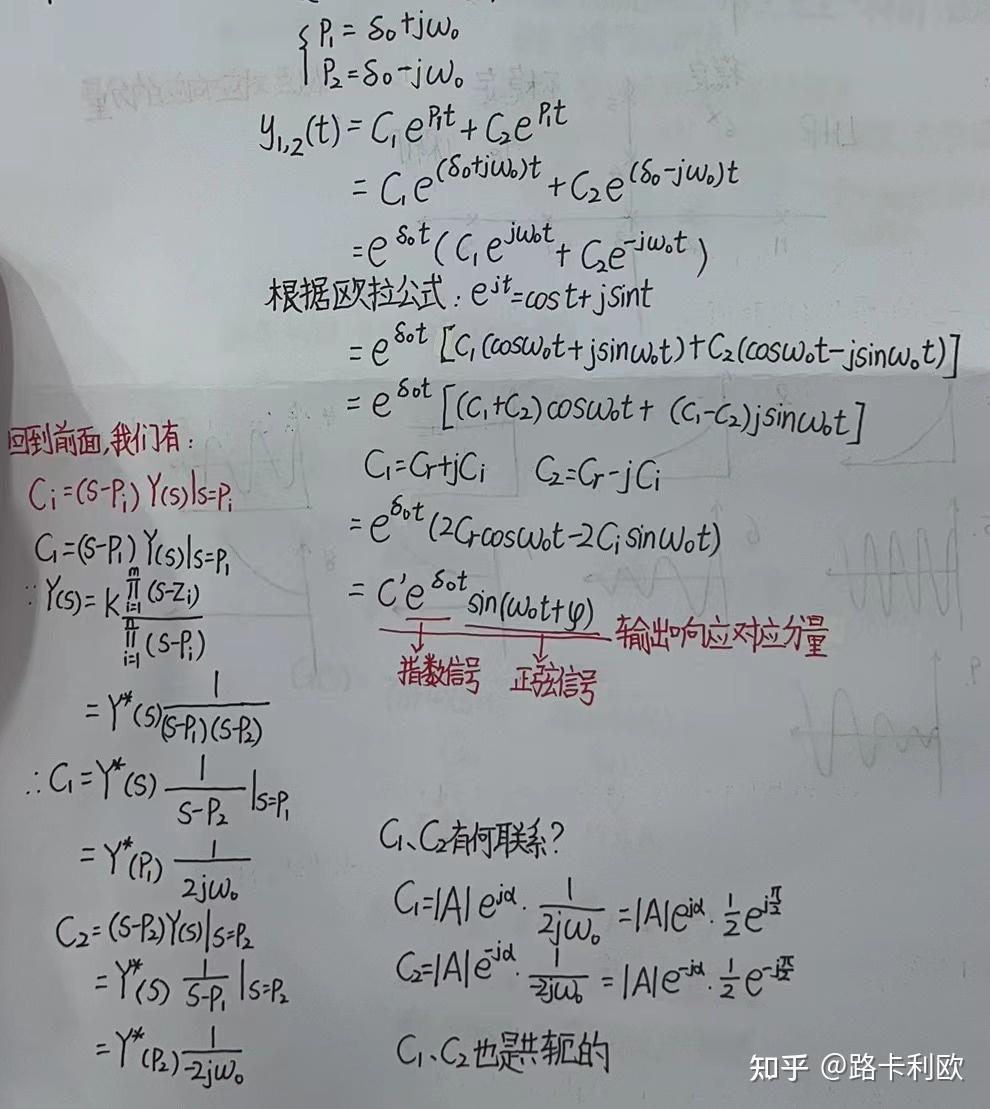 P₁ = δ₀+jω₀
P₂ = δ₀-jω₀
y₁,₂(t) = C₁e^{P₁t} + C₂e^{P₁t}
= C₁e^{(δ₀+jω₀)t} + C₂e^{(δ₀-jω₀)t}
= e^{δ₀t}(C₁e^{jω₀t} + C₂e^{-jω₀t})
根据欧拉公式: e^{jt}=cost+jsint
= e^{δ₀t}[C₁(cosω₀t+jsinω₀t)+C₂(cosω₀t-jsinω₀t)]
= e^{δ₀t}[(C₁+C₂)cosω₀t+(C₁-C₂)jsinω₀t]
C₁=Cr+jCi C₂=Cr-jCi
= e^{δ₀t}(2Crcosω₀t-2Cisinω₀t)
= C'e^{δ₀t}sin(ω₀t+φ) 输出响应对应分量
指数信号 正弦信号
回到前面,我们有:
Ci=(S-Pi)Y(S)|S=Pi
C₁=(S-P₁)Y(S)|S=P₁
∵Y(S)=K \frac{\prod_{i=1}^{m}(S-Zi)}{\prod_{i=1}^{n}(S-Pi)}
= Y*(S)\frac{1}{(S-P₁)(S-P₂)}
∴C₁=Y*(S)\frac{1}{S-P₂}|S=P₁
= Y*(P₁)\frac{1}{2jω₀}
C₂=(S-P₂)Y(S)|S=P₂
= Y*(S)\frac{1}{S-P₁}|S=P₂
= Y*(P₂)\frac{1}{-2jω₀}
C₁、C₂有何联系?
C₁=|A|e^{jα}·\frac{1}{2jω₀}=|A|e^{jα}·\frac{1}{2}e^{j\frac{π}{2}}
C₂=|A|e^{-jα}·\frac{1}{-2jω₀}=|A|e^{-jα}·\frac{1}{2}e^{-j\frac{π}{2}}
C₁、C₂也是共轭的
知乎 @路卡利欧